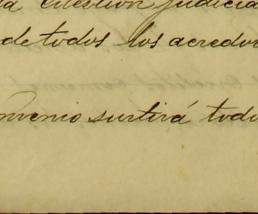 la cuestion judicia
de todos los acredor
nvenio surtirá todo